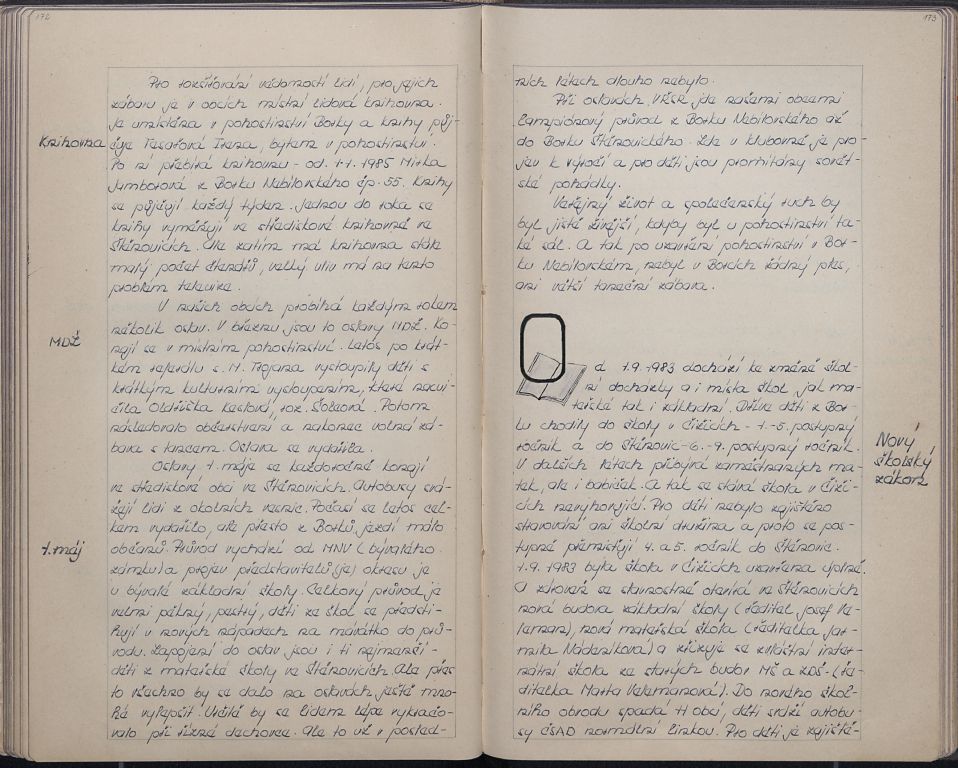 172
Pro rozšiřování vědomostí lidí, pro jejich
zábavu je v obcích místní lidová knihovna.
Je umístěna v pohostinství Borky a knihy půj-
Knihovna
čuje Ivana, bytem v pohostinství.
Po ní přebírá knihovnu - od 1.1.1985 Mirka
z Borku Nebílovského čp. 55. Knihy
se půjčují každý týden. Jednou do roka se
knihy vyměňují ve střediskové knihovně ve
Štěnovicích. Ale zatím má knihovna stále
malý počet čtenářů, velký vliv má na tento
problém televize.
V našich obcích probíhá každým rokem
několik oslav. V březnu jsou to oslavy MDŽ. Ko-
MDŽ
nají se v místním pohostinství. Letos po krát-
kém referátu s. M. Trojana vystoupily děti s
krátkým kulturním vystoupením, které nacvi-
čila Oldřiška Keslová, roz. Šolcová. Potom
následovalo občerstvení a nakonec volná zá-
bava s tancem. Oslava se vydařila.
Oslavy 1. máje se každoročně konají
ve střediskové obci ve Štěnovicích. Autobusy svá-
žejí lidi z okolních vesnic. Počasí se letos cel-
kem vydařilo, ale přesto z Borků jezdí málo
1. máj
občanů. Průvod vychází od MNV (bývalého
zámku) a projev představitelů (je) okresu je
u bývalé základní školy. Celkový průvod je
velmi pěkný, pestrý, děti ze škol se předsti-
hují v nových nápadech na mávátko do prů-
vodu. Zapojeni do oslav jsou i ti nejmenší -
děti z mateřské školy ve Štěnovicích. Ale přes
to všechno by se dalo na oslavách ještě mno-
hé vylepšit. Určitě by se lidem lépe vykračo-
valo při řízné dechovce. Ale to už v posled-
173
ních létech dlouho nebylo.
Při oslavách VŘSR jde našemi obcemi
lampiónový průvod z Borku Nebílovského až
do Borku Štěnovického. Zde v klubovně je pro-
jev k výročí a pro děti jsou promítány sovět-
ské pohádky.
Veřejný život a společenský ruch by
byl jistě živější, kdyby byl u pohostinství ta-
ké sál. A tak po uzavření pohostinství v Bor-
ku Nebílovském, nebyl v Borcích žádný ples,
ani větší taneční zábava.
Od 1.9.1983 dochází ke změně škol-
ní docházky a i místa škol, jak ma-
teřské tak i základní. Dříve děti z Bor-
ku chodily do školy v Čižicích - 1.-5. postupný
ročník a do Štěnovic - 6.-9. postupný ročník.
Nový
školský
zákon
V dalších létech přibývá zaměstnaných ma-
tek, ale i babiček. A tak se stává škola v Čiži-
cích nevyhovující. Pro děti nebylo zajištěno
stravování ani školní družina a proto se pos-
tupně přemisťují 4. a 5. ročník do Štěnovic.
1.9.1983 byla škola v Čižicích uzavřena úplně.
A zároveň se slavnostně otevírá ve Štěnovicích
nová budova základní školy (ředitel Josef Ve-
leman), nová mateřská škola (ředitelka Jar-
mila Nádeníková) a zřizuje se zvláštní inter-
nátní škola ze starých budov MŠ a ZDŠ - (ře-
ditelka Marta Velemanová). Do nového škol-
ního obvodu spadá 11 obcí, děti sváží autobu-
sy ČSAD normální linkou. Pro děti je zajiště-